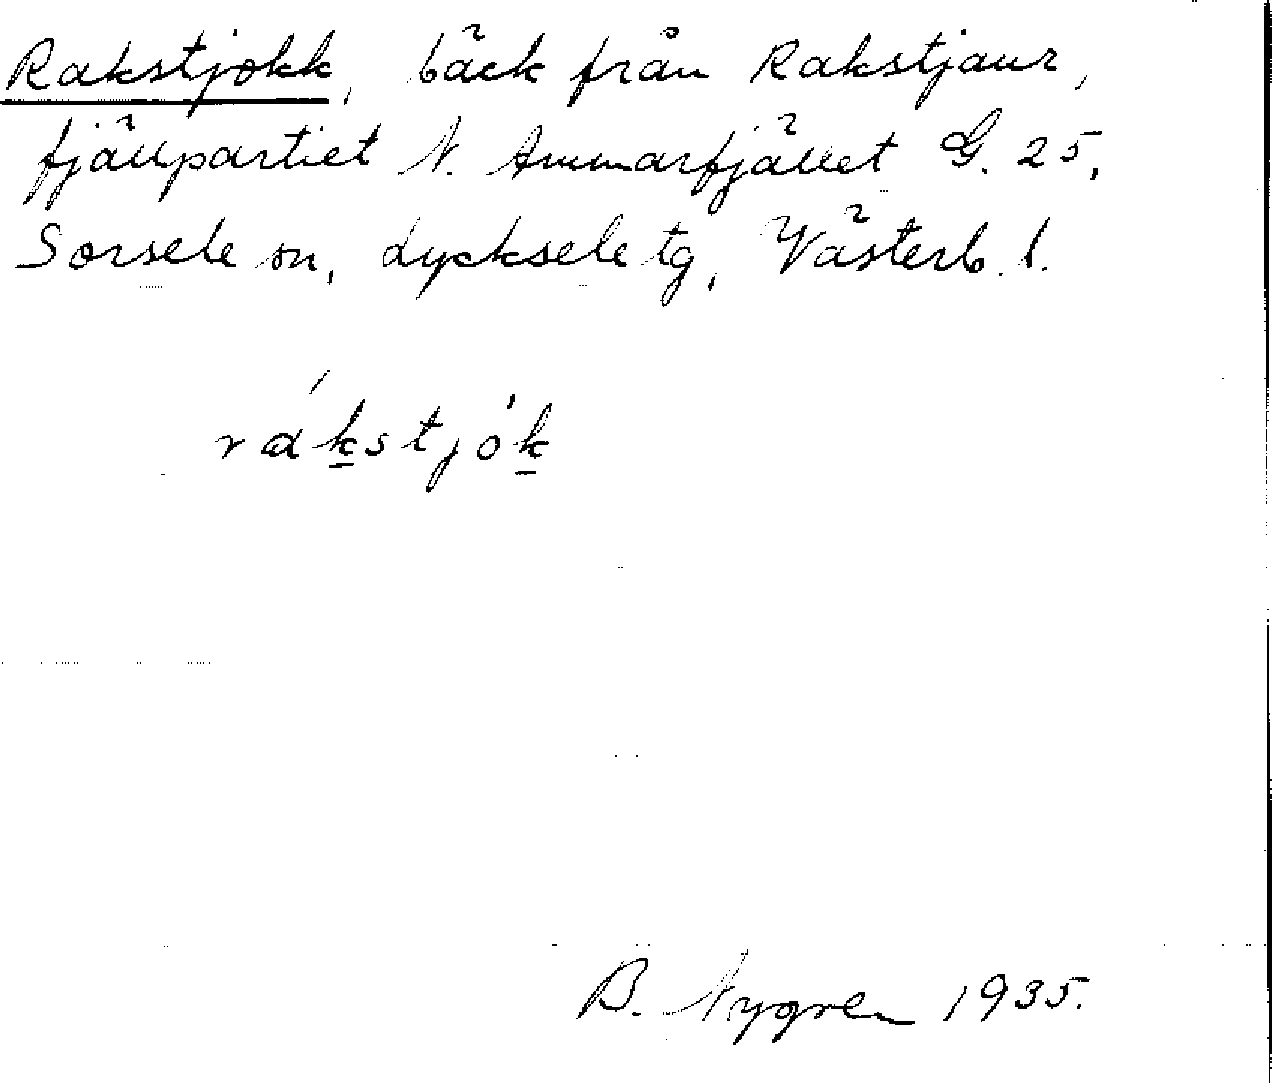 Rakstjokk, bäck från Rakstjaur,
fjällpartiet N. Ammarfjället G. 25,
Sorsele sn, Lycksele tg, Västerb. l.
ráḵstjóḵ
B. Nygren 1935.